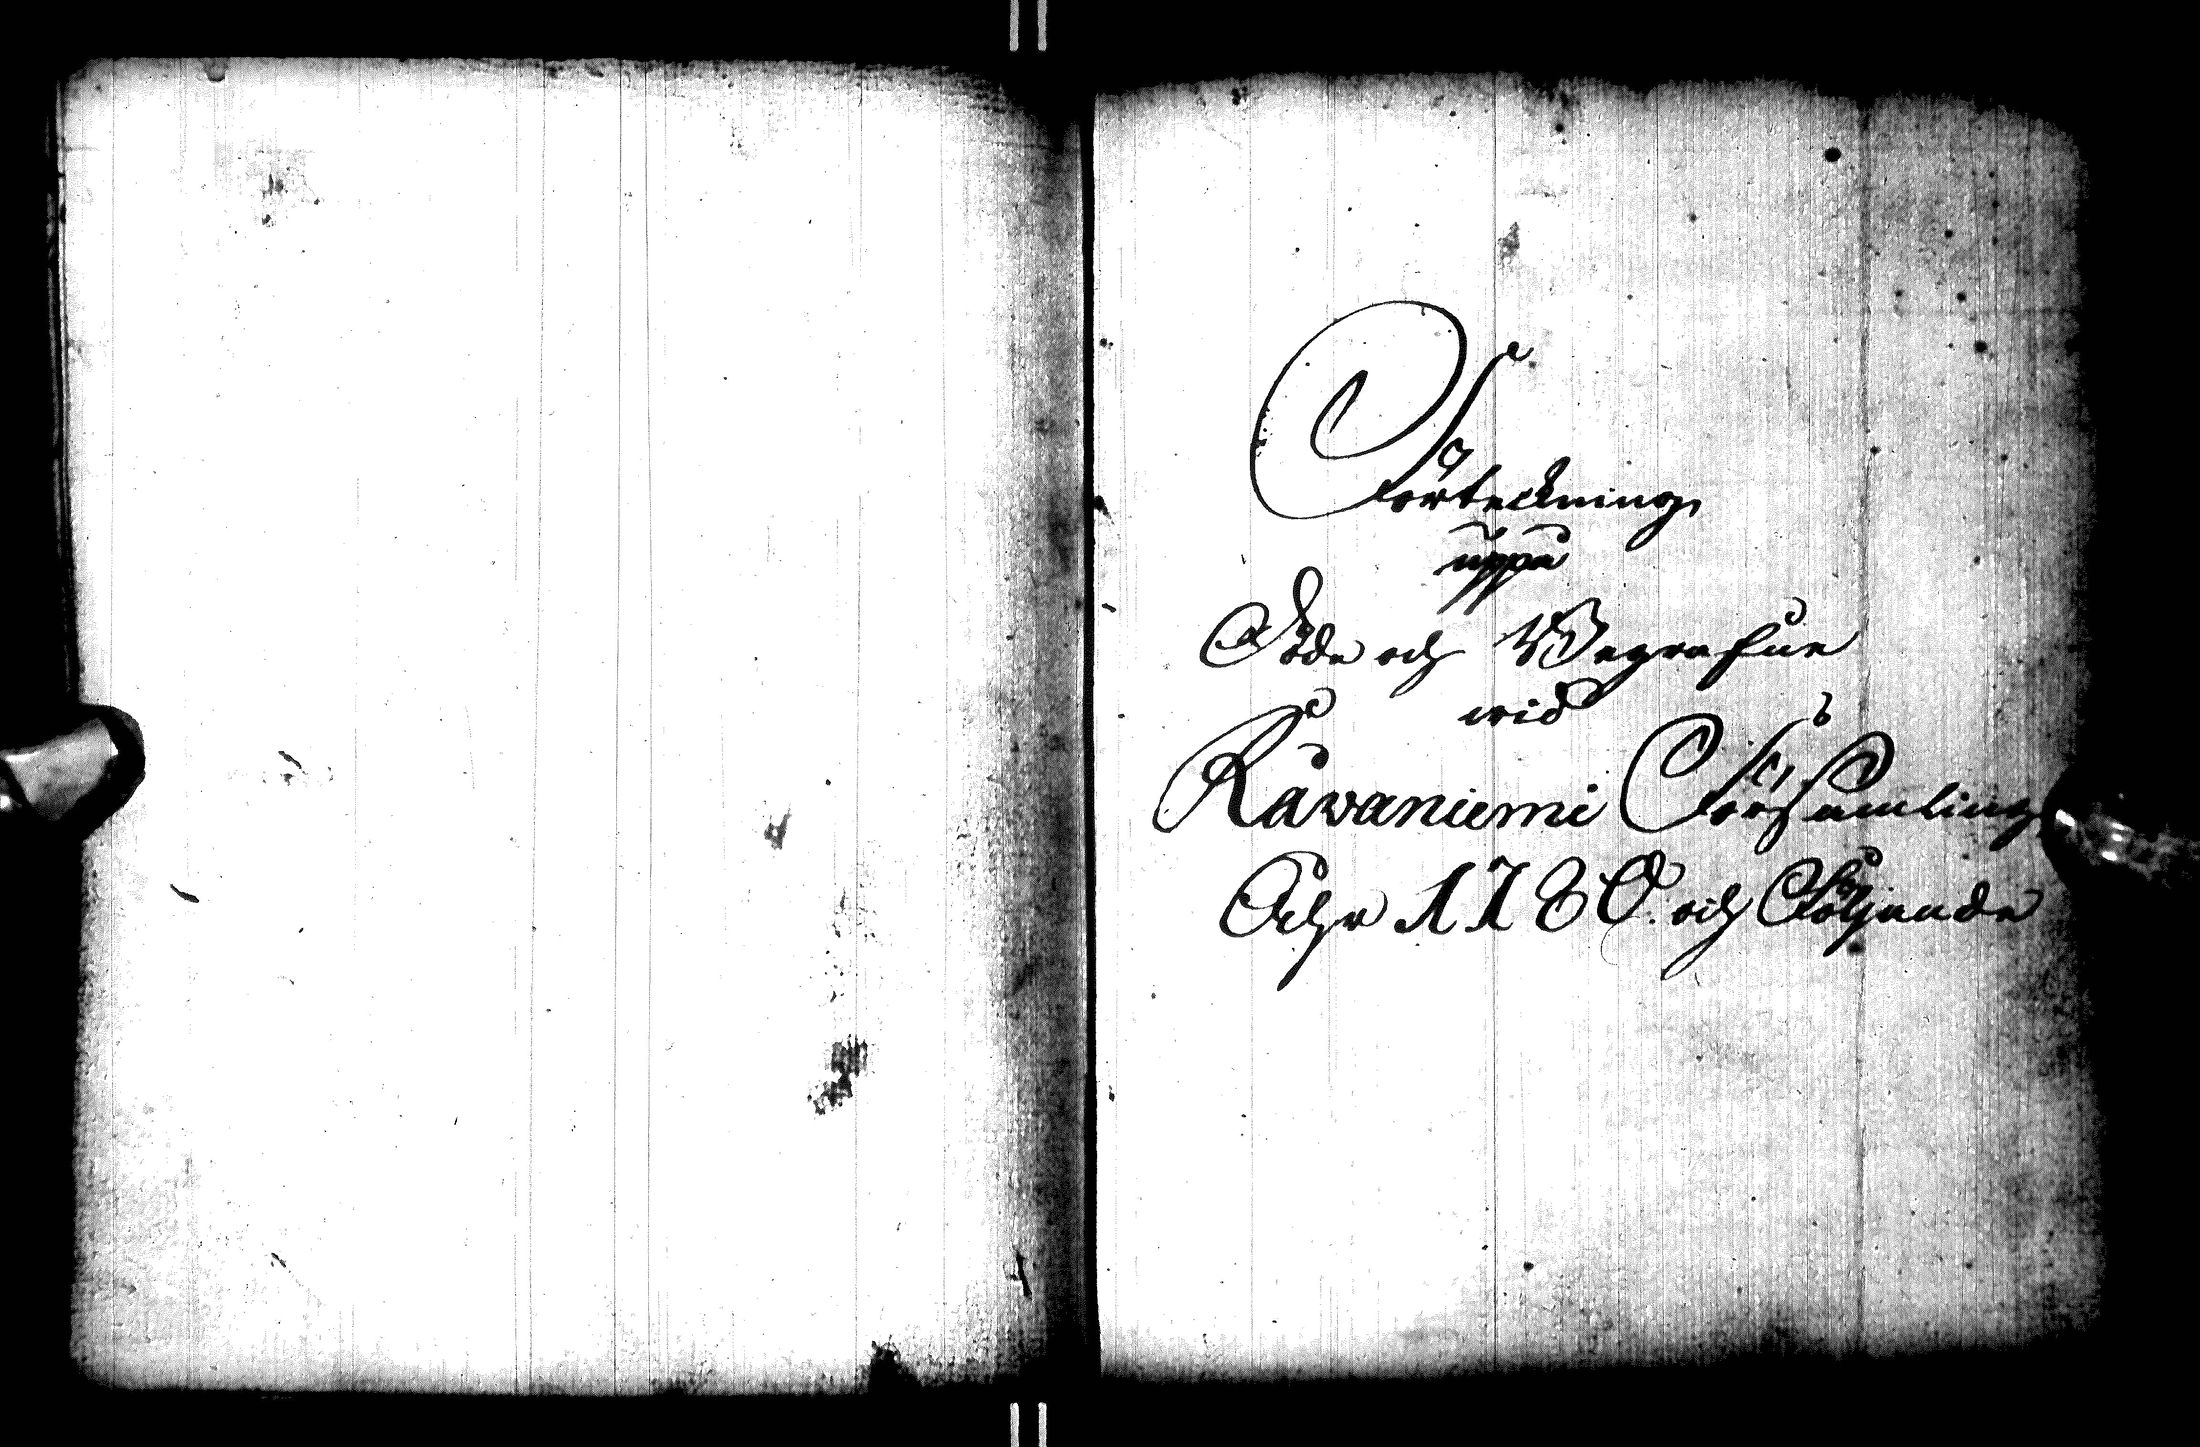 Förteckning
uppå
Föde och Begrafne
wid
Råwaniemi Församling
Åhr 1780. och Följande